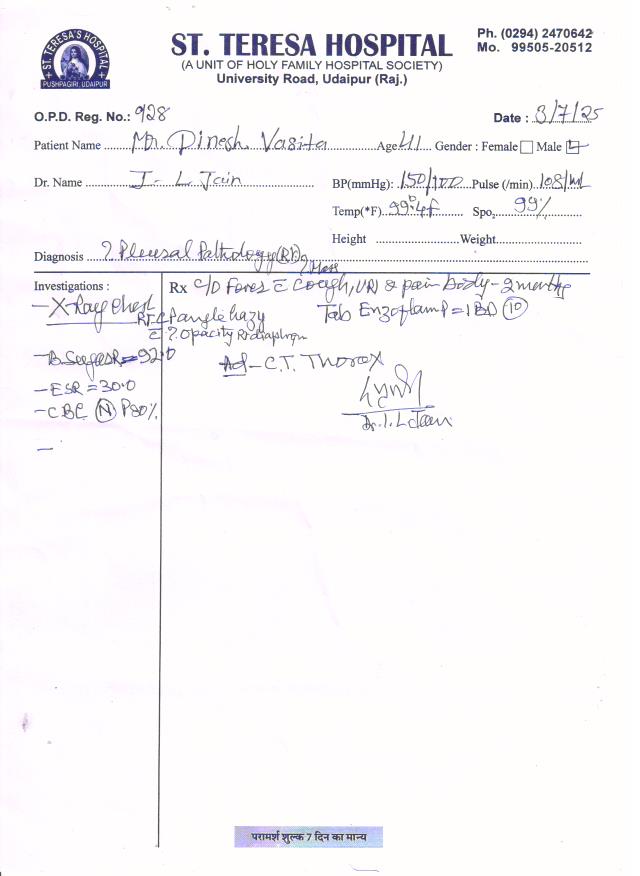 ST. TERESA'S HOSPITAL
PUSHPAGIRI, UDAIPUR
ST. TERESA HOSPITAL
(A UNIT OF HOLY FAMILY HOSPITAL SOCIETY)
University Road, Udaipur (Raj.)
Ph. (0294) 2470642
Mo. 99505-20512
O.P.D. Reg. No.: 928
Date : 3/7/25
Patient Name Mr. Dinesh Vasita Age 41 Gender : Female Male
Dr. Name J. L. Jain BP(mmHg): 150/100 Pulse (/min) 108/
Temp(*F) 99.4f Spo2 99%
Height Weight
Diagnosis ? Pleural Pathology (Rt) ? Mass
Investigations :
Rx c/o Fever c Cough, & pain body - 2 months
- X-Ray Chest
Rt. C P angle hazy
Tab =1 BD (10)
c ? Opacity Rt diaphragm
- B. Sugar = 92.0
Ad - C.T. Thorax
- ESR = 30.0
- CBC (N) P80%
Dr. J. L. Jain
-
परामर्श शुल्क 7 दिन का मान्य